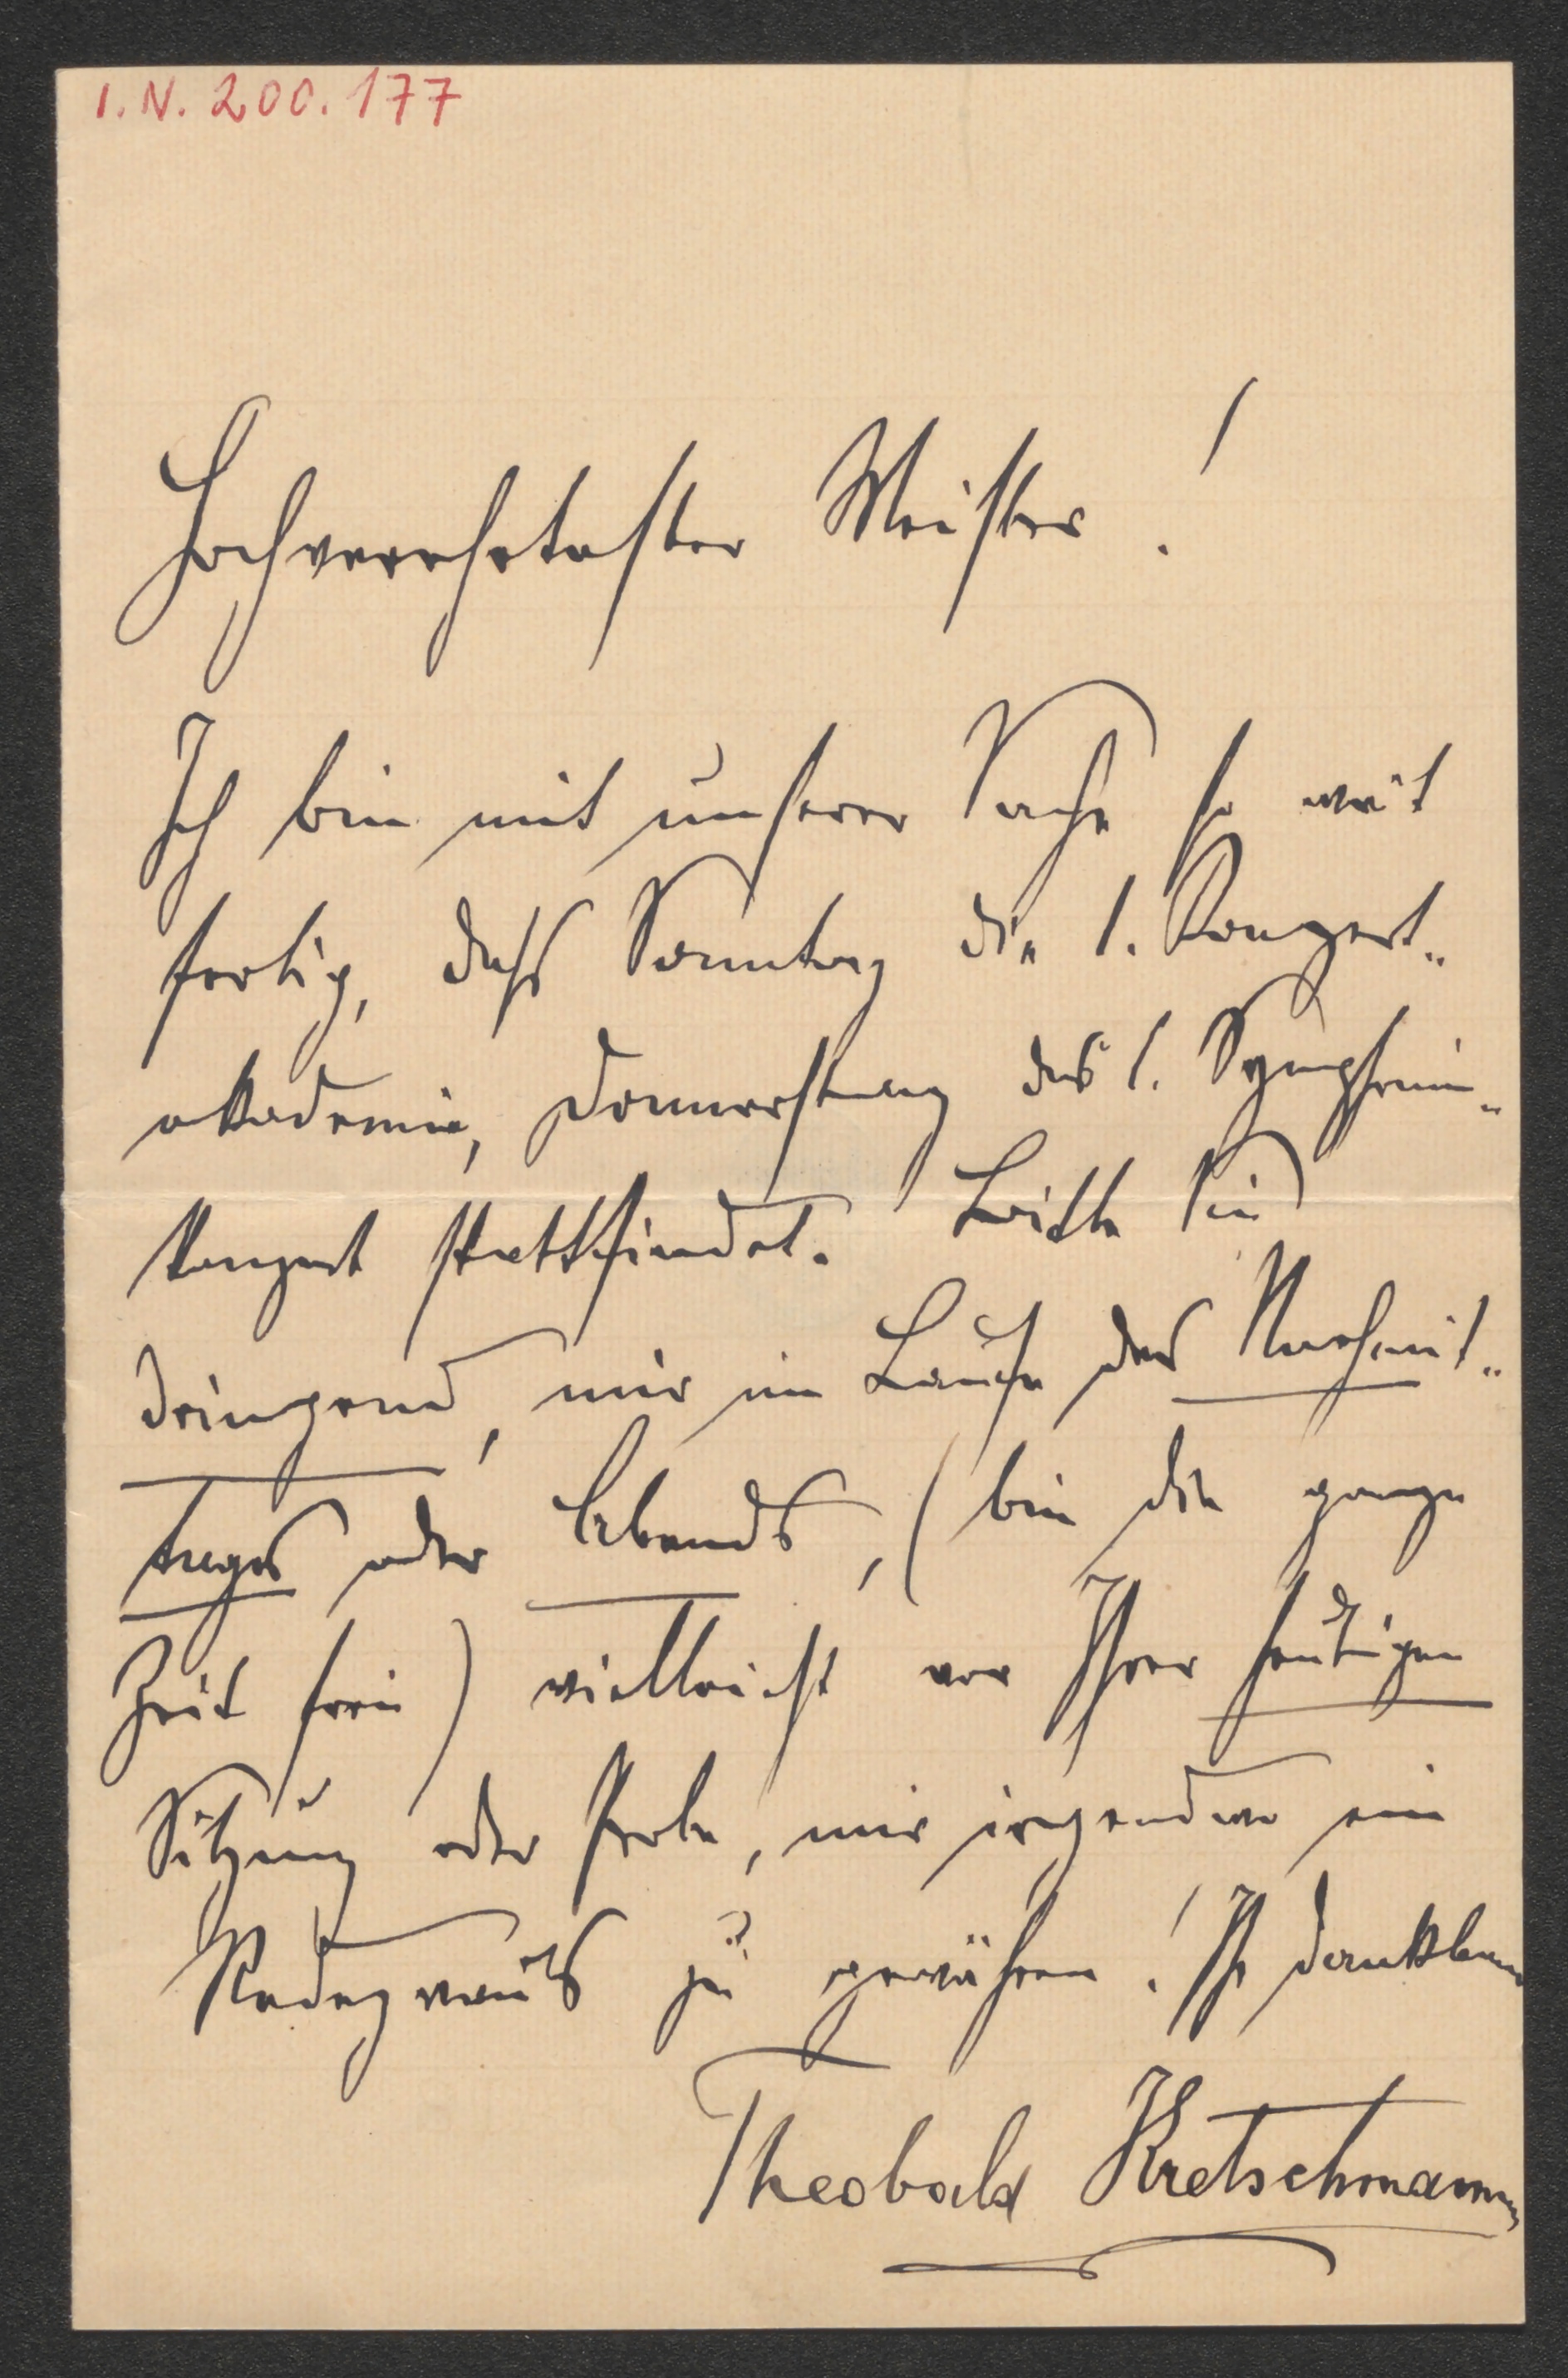 I. N. 200.177
Hochverehrtester Meister!
Ich bin mit unserer Sache so weit
fertig, daß Sonntag die 1. Konzert-
akademie, Donnerstag das 1. Symphonie-
konzert stattfindet. Bitte Sie
dringend, mir im Laufe des Nachmit-
tages oder Abends, (bin die ganze
Zeit frei) vielleicht vor Ihrer heutigen
Sitzung oder Probe, mir irgendwo ein
Rendezvous zu gewähren! Ihr dankbarer
Theobald Kretschmann